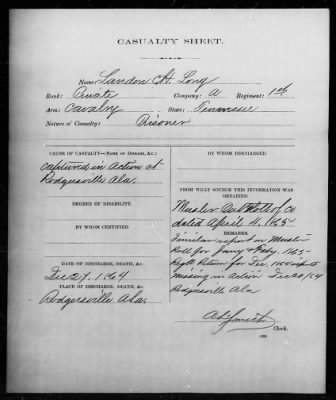 CASUALTY SHEET.
Name: Landon H. Long
Rank: Private Company: A Regiment: 1st
Arm: Cavalry State: Tennessee
Nature of Casualty: Prisoner
CAUSE OF CASUALTY—(NAME OF DISEASE, &C.)
captured in action at
Rodgersville Ala.
DEGREE OF DISABILITY.
BY WHOM CERTIFIED.
DATE OF DISCHARGE, DEATH, &C.
Dec 27, 1864
PLACE OF DISCHARGE, DEATH, &C.
Rodgersville Ala.
BY WHOM DISCHARGED.
FROM WHAT SOURCE THIS INFORMATION WAS
OBTAINED.
Muster Out Roll of Co
dated April 4, 1865
REMARKS.
Similar report on Muster
Roll for Jany & Feby. 1865
Regtl Return for Dec, 1864 reports
missing in action Dec 20/64
Rodgersville Ala
Clerk.